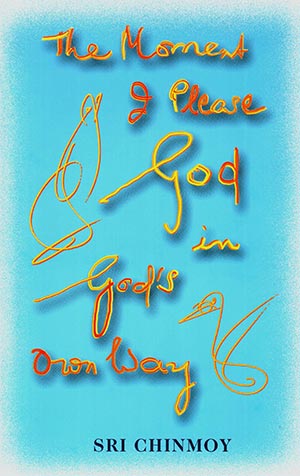 The Moment
I Please
God
in
God's
Own Way
SRI CHINMOY